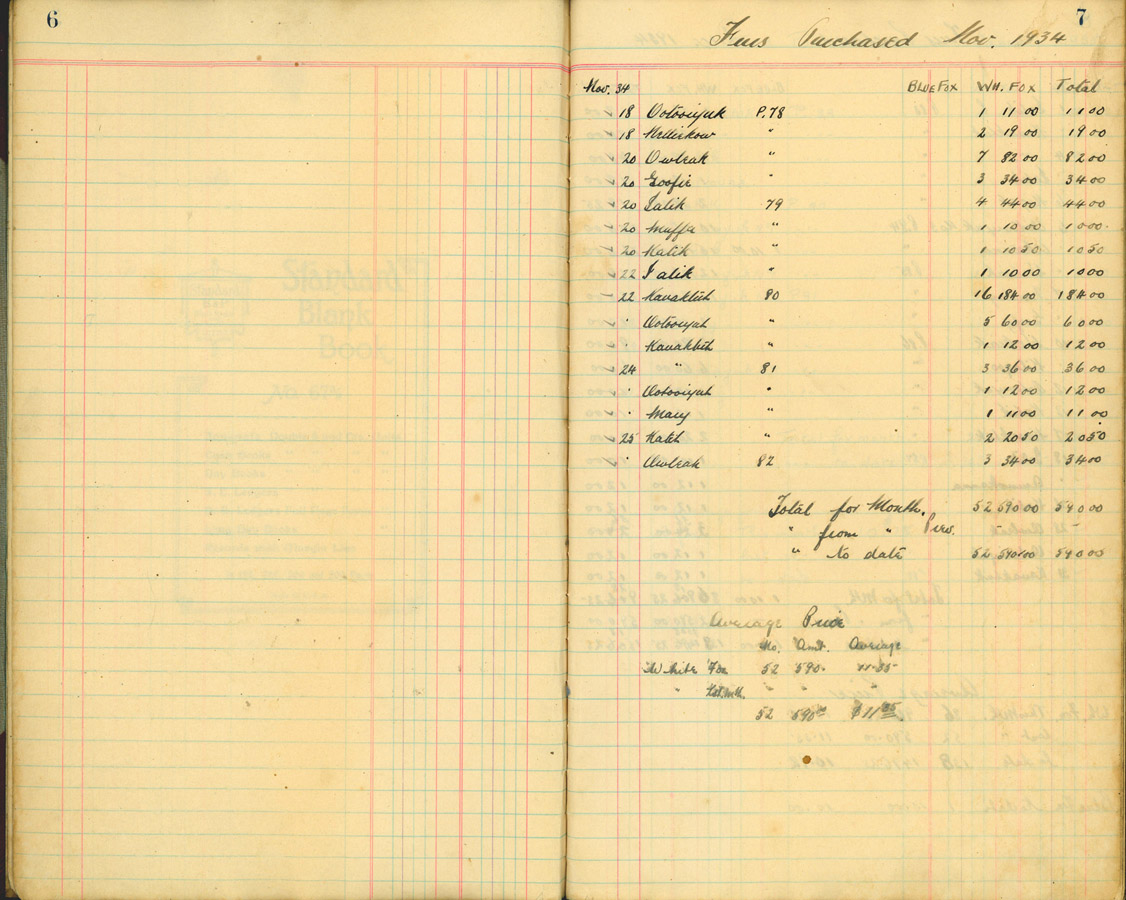 6
7
Furs Purchased Nov. 1934
Nov. 34 BLUE FOX WH. FOX Total
✓ 18 Ootooiyuk P. 78 1 11 00 11 00
✓ 18 " 2 19 00 19 00
✓ 20 Owleak " 7 82 00 82 00
✓ 20 Goofie " 3 34 00 34 00
✓ 20 Salik 79 4 44 00 44 00
✓ 20 Muffa " 1 10 00 10 00
✓ 20 Katik " 1 10 50 10 50
✓ 22 Salik " 1 10 00 10 00
✓ 22 Kavakluk 80 16 184 00 184 00
✓ " Ootooiyuk " 5 60 00 60 00
✓ " Kavakluk " 1 12 00 12 00
✓ 24 " 81 3 36 00 36 00
✓ " Ootooiyuk " 1 12 00 12 00
✓ " Mary " 1 11 00 11 00
✓ 25 Katek " 2 20 50 20 50
✓ " Owleak 82 3 34 00 34 00
Total for Month. 52 590 00 590 00
" from " Prev. - -
" to date 52 590 00 590 00
Average Price
No. Amt. Average
White Fox 52 590. 11.35
" " Lst. Mth. " " "
52 590 00 $11 35